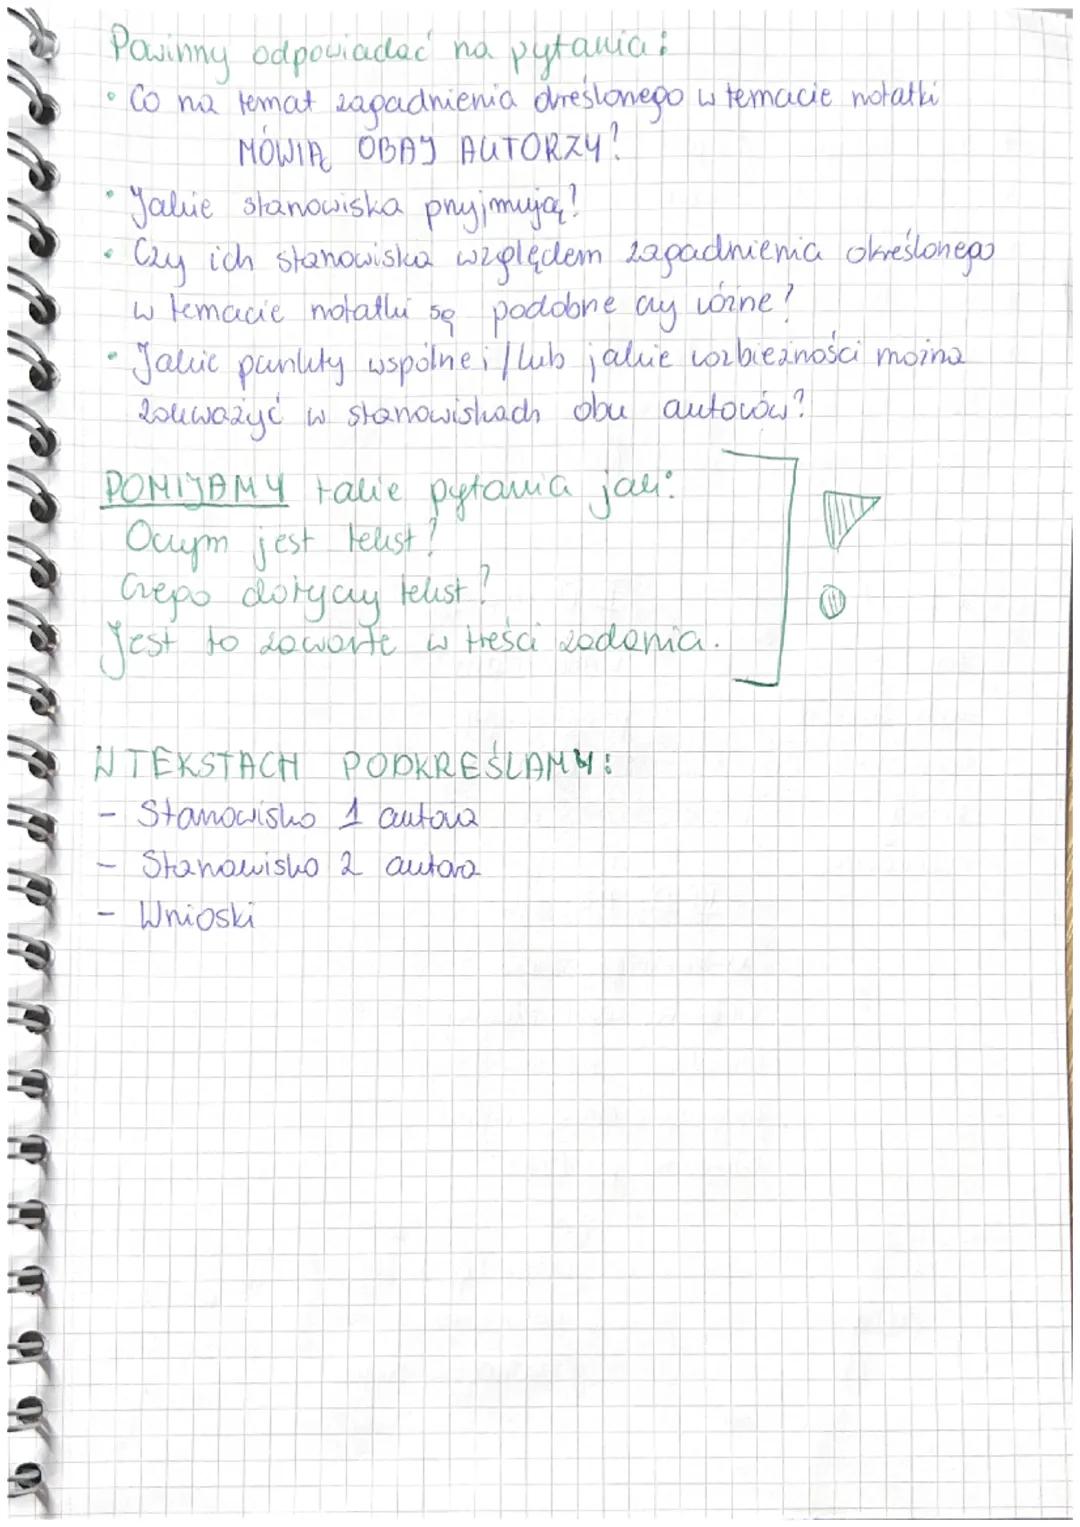 Powinny odpowiadać na pytania:
• Co na temat zagadnienia określonego w temacie notatki
MÓWIĄ OBAJ AUTORZY?
• Jakie stanowiska przyjmują?
• Czy ich stanowiska względem zagadnienia określonego
w temacie notatki są podobne czy różne?
• Jakie punkty wspólne i/lub jakie rozbieżności można
zauważyć w stanowiskach obu autorów?
POMIJAMY takie pytania jak:
O czym jest tekst?
Czego dotyczy tekst?
Jest to zawarte w treści zadania.
W TEKSTACH PODKREŚLAMY:
- Stanowisko 1 autora
- Stanowisko 2 autora
- Wnioski